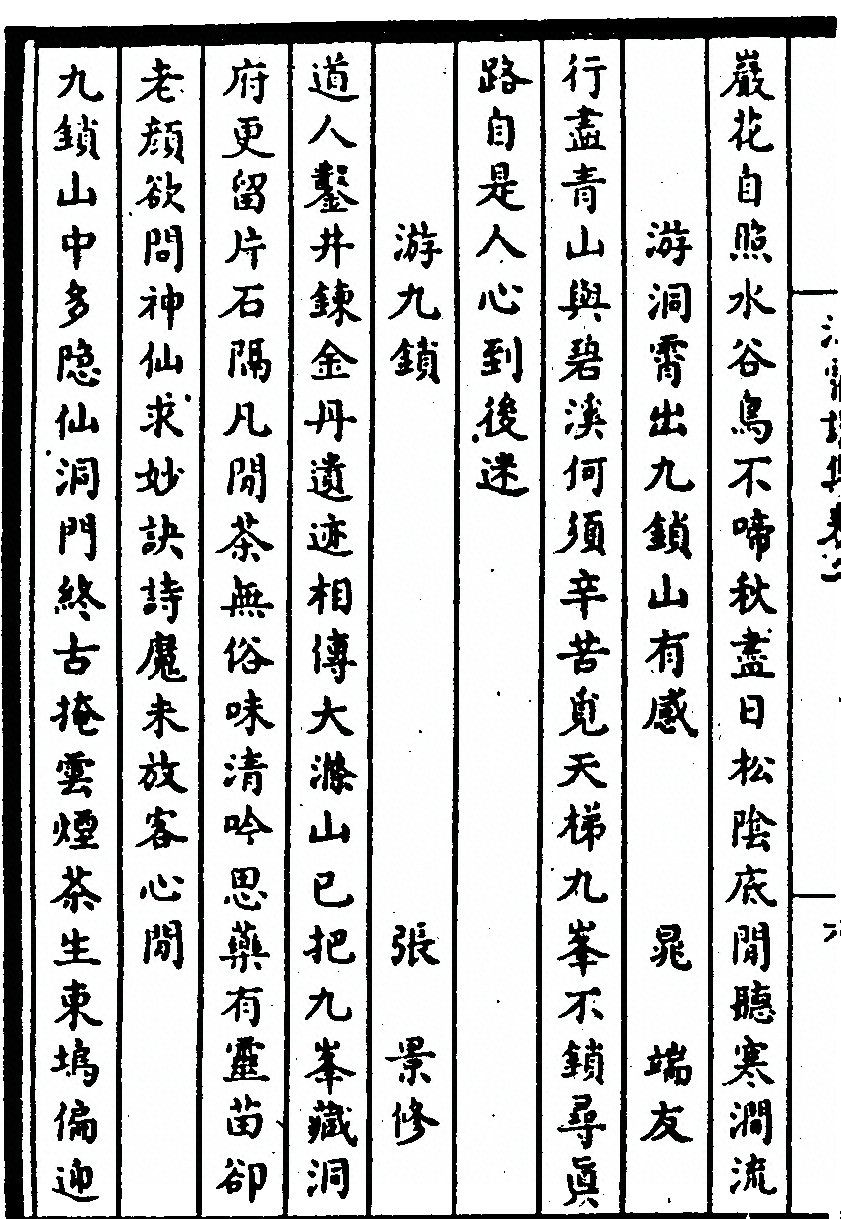 巖花自照水谷鳥不啼秋盡日松陰底閒聽寒澗流
游洞霄出九鎖山有感 晁 端友
行盡青山與碧溪何須辛苦覓天梯九峯不鎖尋眞
路自是人心到後迷
游九鎖 張 景修
道人鑿井鍊金丹遺迹相傳大滌山已把九峯藏洞
府更留片石隔凡閒茶無俗味清吟思藥有靈苗卻
老顏欲問神仙求妙訣詩魔未放客心閒
九鎖山中多隐仙洞門終古掩雲煙茶生東塢偏迎